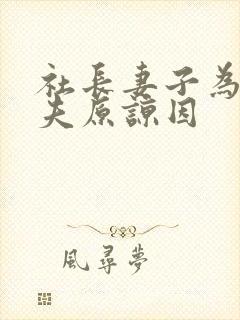 社長妻子為
夫原諒因
風尋夢